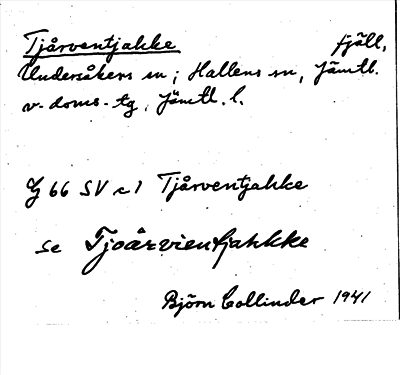 Tjårventjahke fjäll,
Undersåkers sn; Hallens sn, Jämtl.
v. doms-tg, Jämtl. l.
G 66 SV c 1 Tjårventjahke
se Tjoårvientjahkke
Björn Collinder 1941